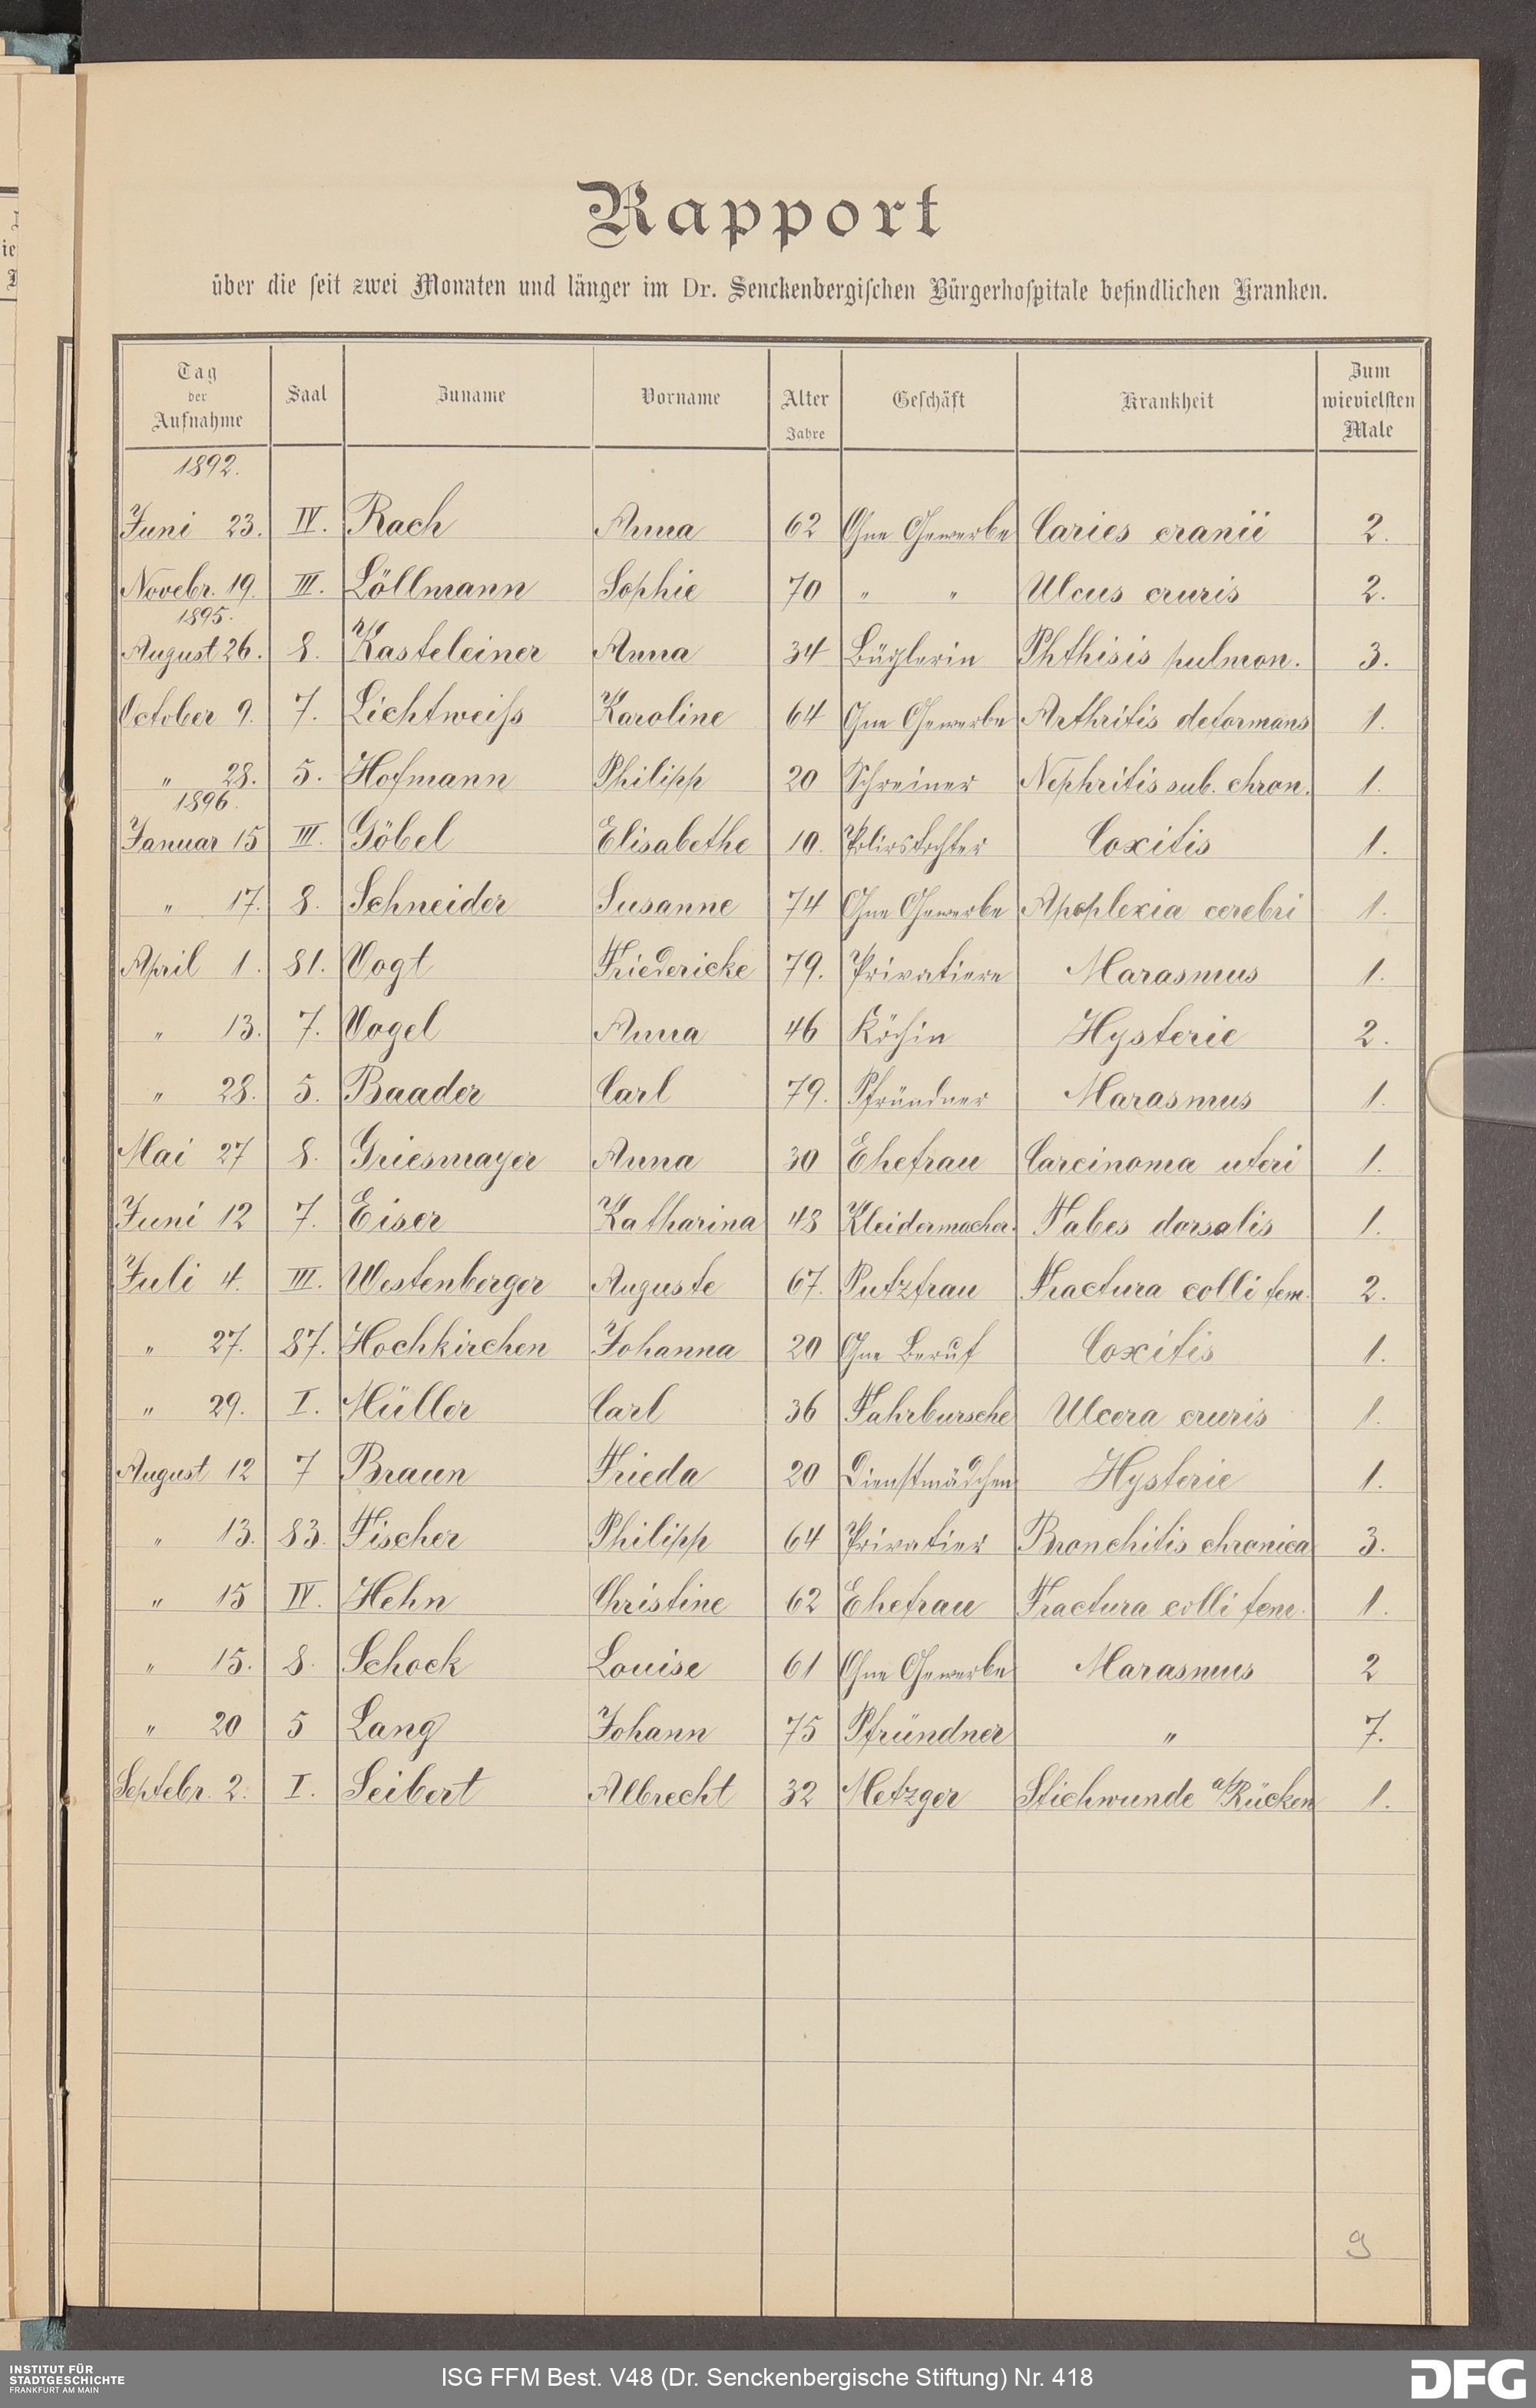 Rapport
über die seit zwei Monaten und länger im Dr. Senckenbergischen Bürgerhospitale befindlichen Kranken.
Tag der Aufnahme Saal Zuname Vorname Alter Jahre Geschäft Krankheit Zum wievielsten Male
1892.
Juni 23. IV. Rach Anna 62 Ohne Gewerbe Caries cranii 2.
Novebr. 19. III. Löllmann Sophie 70 " " Ulcus cruris 2.
1895.
August 26. 8. Kasteleiner Anna 34 Büglerin Phthisis pulmon. 3.
October 9. 7. Lichtweiß Karoline 64 Ohne Gewerbe Arthritis deformans 1.
" 28. 5. Hofmann Philipp 20 Schreiner Nephritis sub. chron. 1.
1896.
Januar 15 III. Göbel Elisabethe 10. Polirstochter Coxitis 1.
" 17. 8. Schneider Susanne 74 Ohne Gewerbe Apoplexia cerebri 1.
April 1. 81. Vogt Friedericke 79. Privatiere Marasmus 1.
" 13. 7. Vogel Anna 46 Köchin Hysterie 2.
" 28. 5. Baader Carl 79. Pfründner Marasmus 1.
Mai 27 8. Griesmayer Anna 30 Ehefrau Carcinoma uteri 1.
Juni 12 7. Eiser Katharina 43 Kleidermacher. Tabes dorsalis 1.
Juli 4. III. Westenberger Auguste 67. Putzfrau Fractura colli fem. 2.
" 27. 87. Hochkirchen Johanna 20 Ohne Beruf Coxitis 1.
" 29. I. Müller Carl 36 Fahrbursche Ulcera cruris 1.
August 12 7 Braun Frieda 20 Dienstmädchen Hysterie 1.
" 13. 83. Fischer Philipp 64 Privatier Bronchitis chronica 3.
" 15 IV. Hehn Christine 62 Ehefrau Fractura colli fem. 1.
" 15. 8. Schock Louise 61 Ohne Gewerbe Marasmus 2
" 20 5 Lang Johann 75 Pfründner " 7.
Septebr. 2. I. Seibert Albrecht 32 Metzger Stichwunde a/Rücken 1.
9
INSTITUT FÜR
STADTGESCHICHTE
FRANKFURT AM MAIN
ISG FFM Best. V48 (Dr. Senckenbergische Stiftung) Nr. 418
DFG